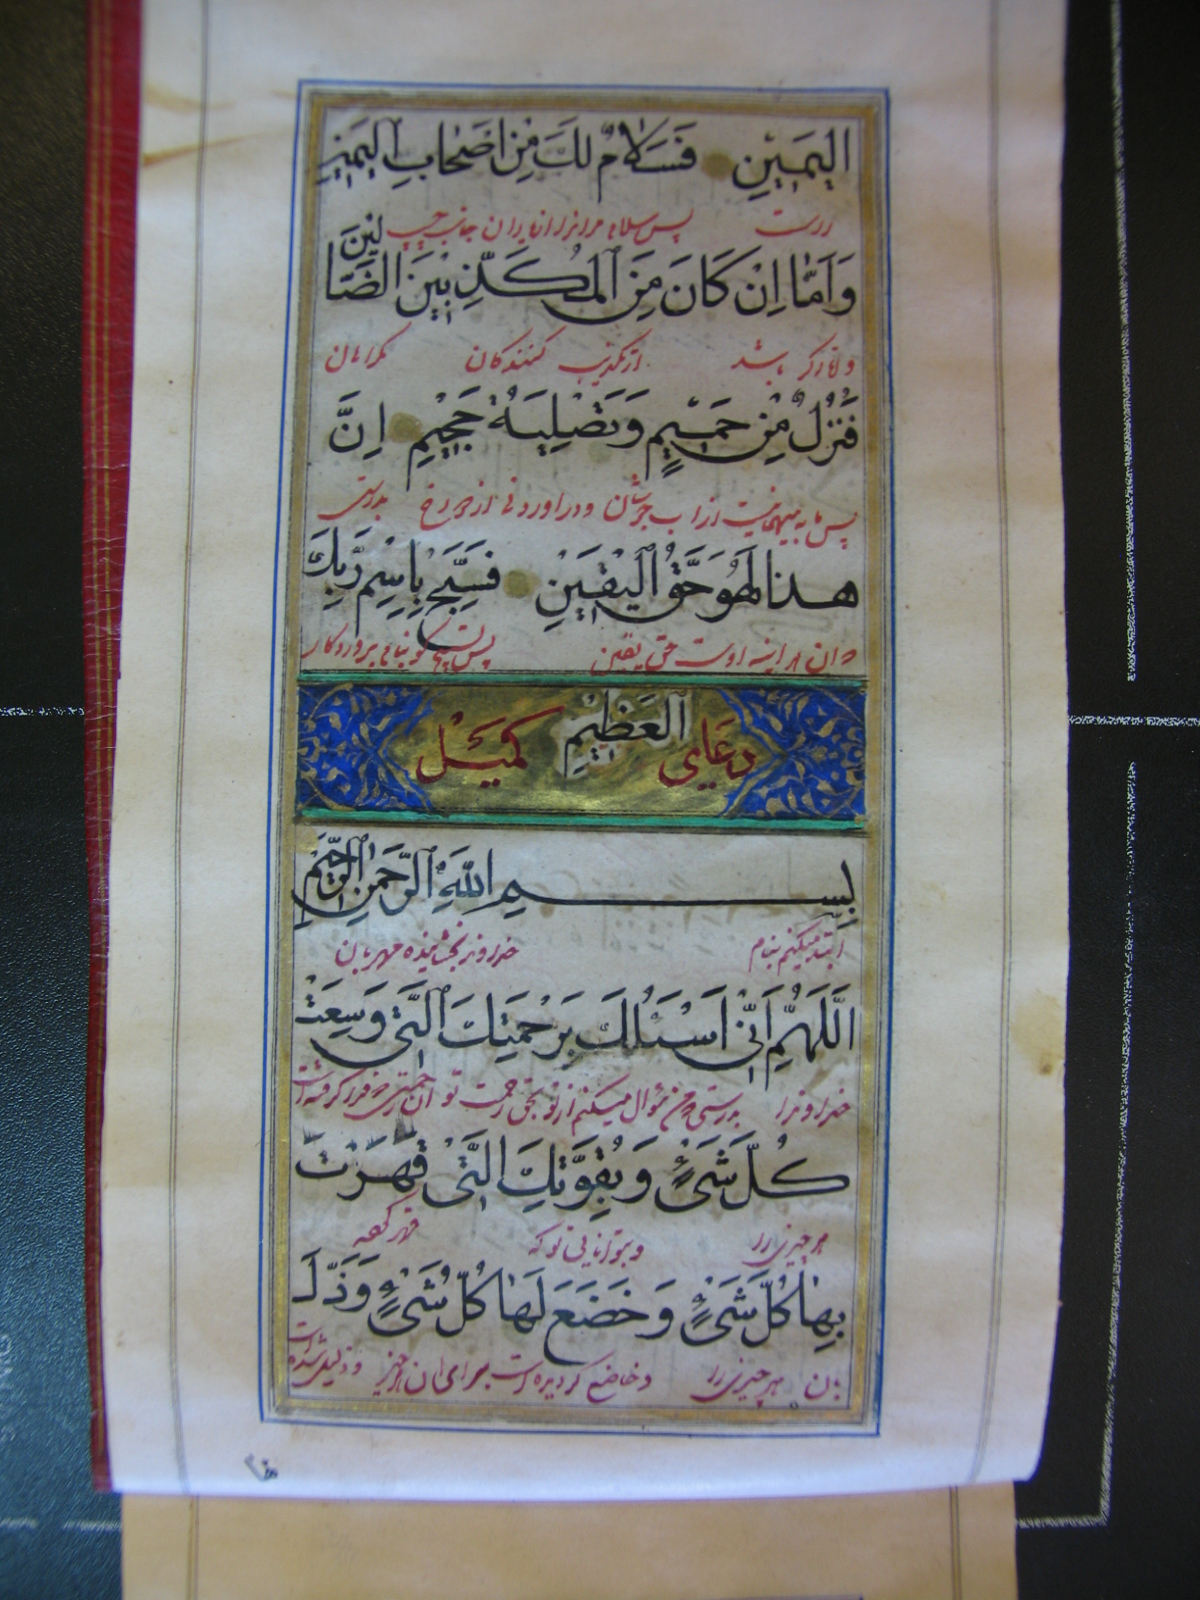 الْيَمِينِ فَسَلَامٌ لَكَ مِنْ اَصْحَابِ الْيَمِينِ
پس سلام مر ترا از یاران جانب
وَاَمَّا اِنْ كَانَ مِنَ الْمُكَذِّبِينَ الضَّالِّينَ
باشد از تکذیب کنندکان کمراهان
فَنُزُلٌ مِنْ حَمِيمٍ وَتَصْلِيَةُ جَحِيمٍ اِنَّ
پس از اب جوشان و در اوردنی از دوزخ بدرستی
هذا لَهُوَ حَقُّ الْيَقِينِ فَسَبِّحْ بِاسْمِ رَبِّكَ
ان هر اینه اوست حق یقین پس تسبیح کو بنام پروردکار
دعای الْعَظِيمِ كميل
بِسْمِ اللّٰهِ الرَّحْمٰنِ الرَّحِيمِ
ابتدا میکنم بنام خداوند بخشاینده مهربان
اَللّٰهُمَّ اِنِّي اَسْئَلُكَ بِرَحْمَتِكَ الَّتِي وَسِعَتْ
خداوندا بدرستی من سؤال میکنم از تو بحق رحمت تو ان رحمتی فرا کرفته است
كُلَّ شَيْءٍ وَبِقُوَّتِكَ الَّتِي قَهَرْتَ
هر چیزی را و بتوانایی تو که قهر کرده
بِهَا كُلَّ شَيْءٍ وَخَضَعَ لَهَا كُلُّ شَيْءٍ وَذَلَّ
بان هر چیزی را و خاضع کردیده است برای ان هر چیز و ذلیل شده است